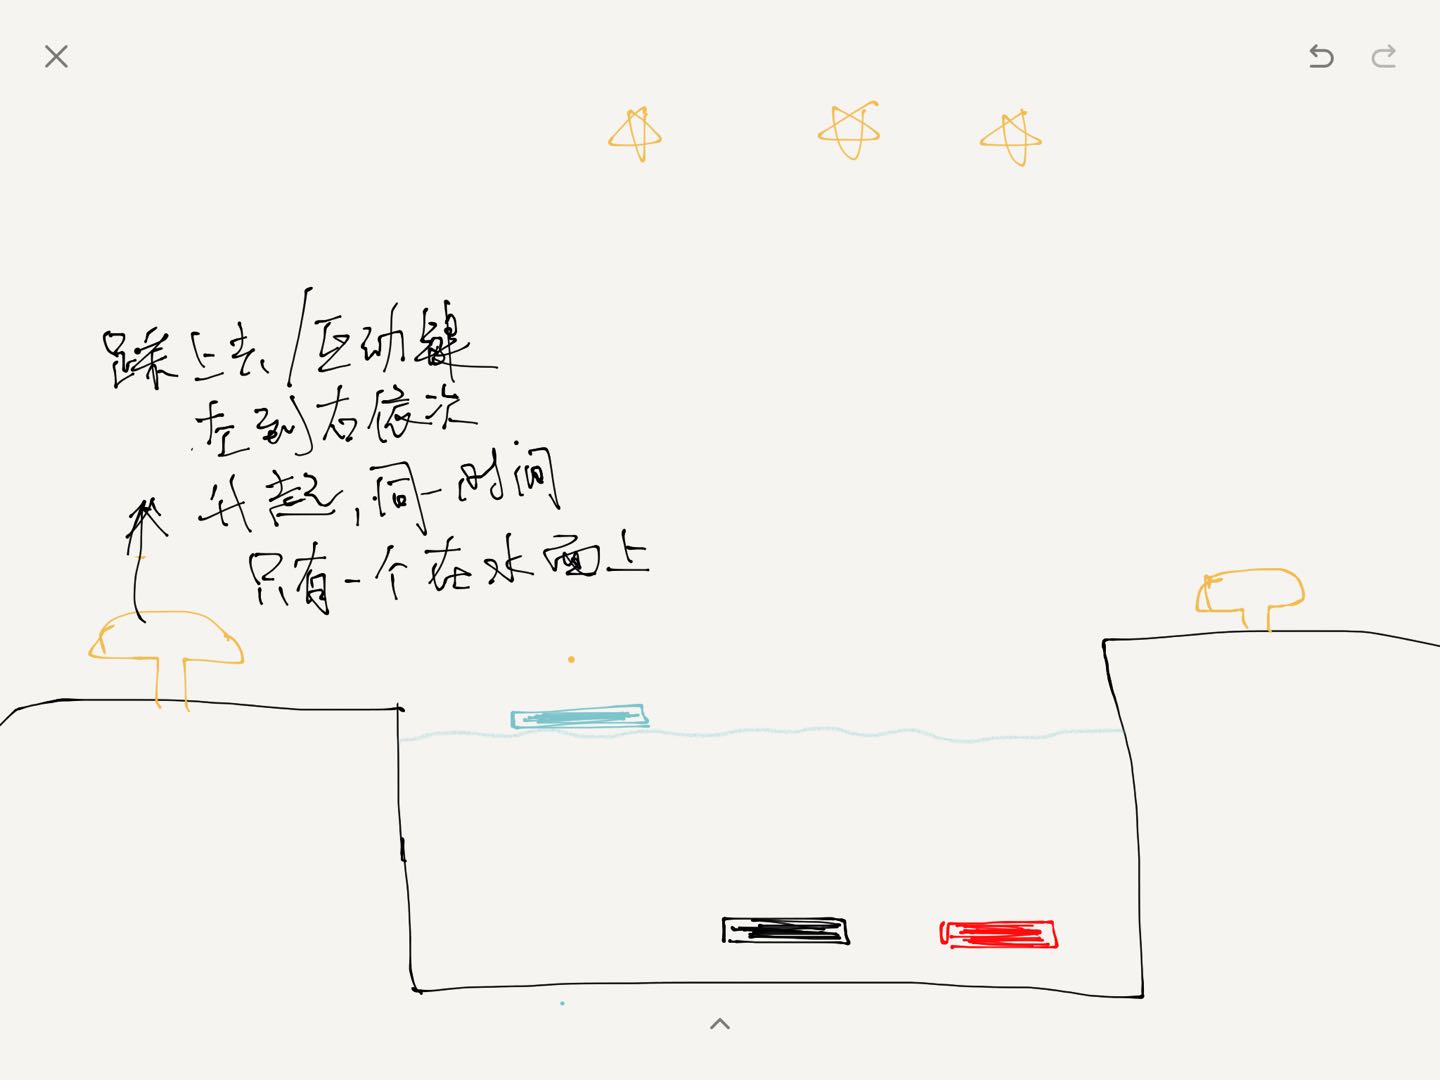 踩上去/互动键
左到右依次
升起,同一时间
只有一个在水面上